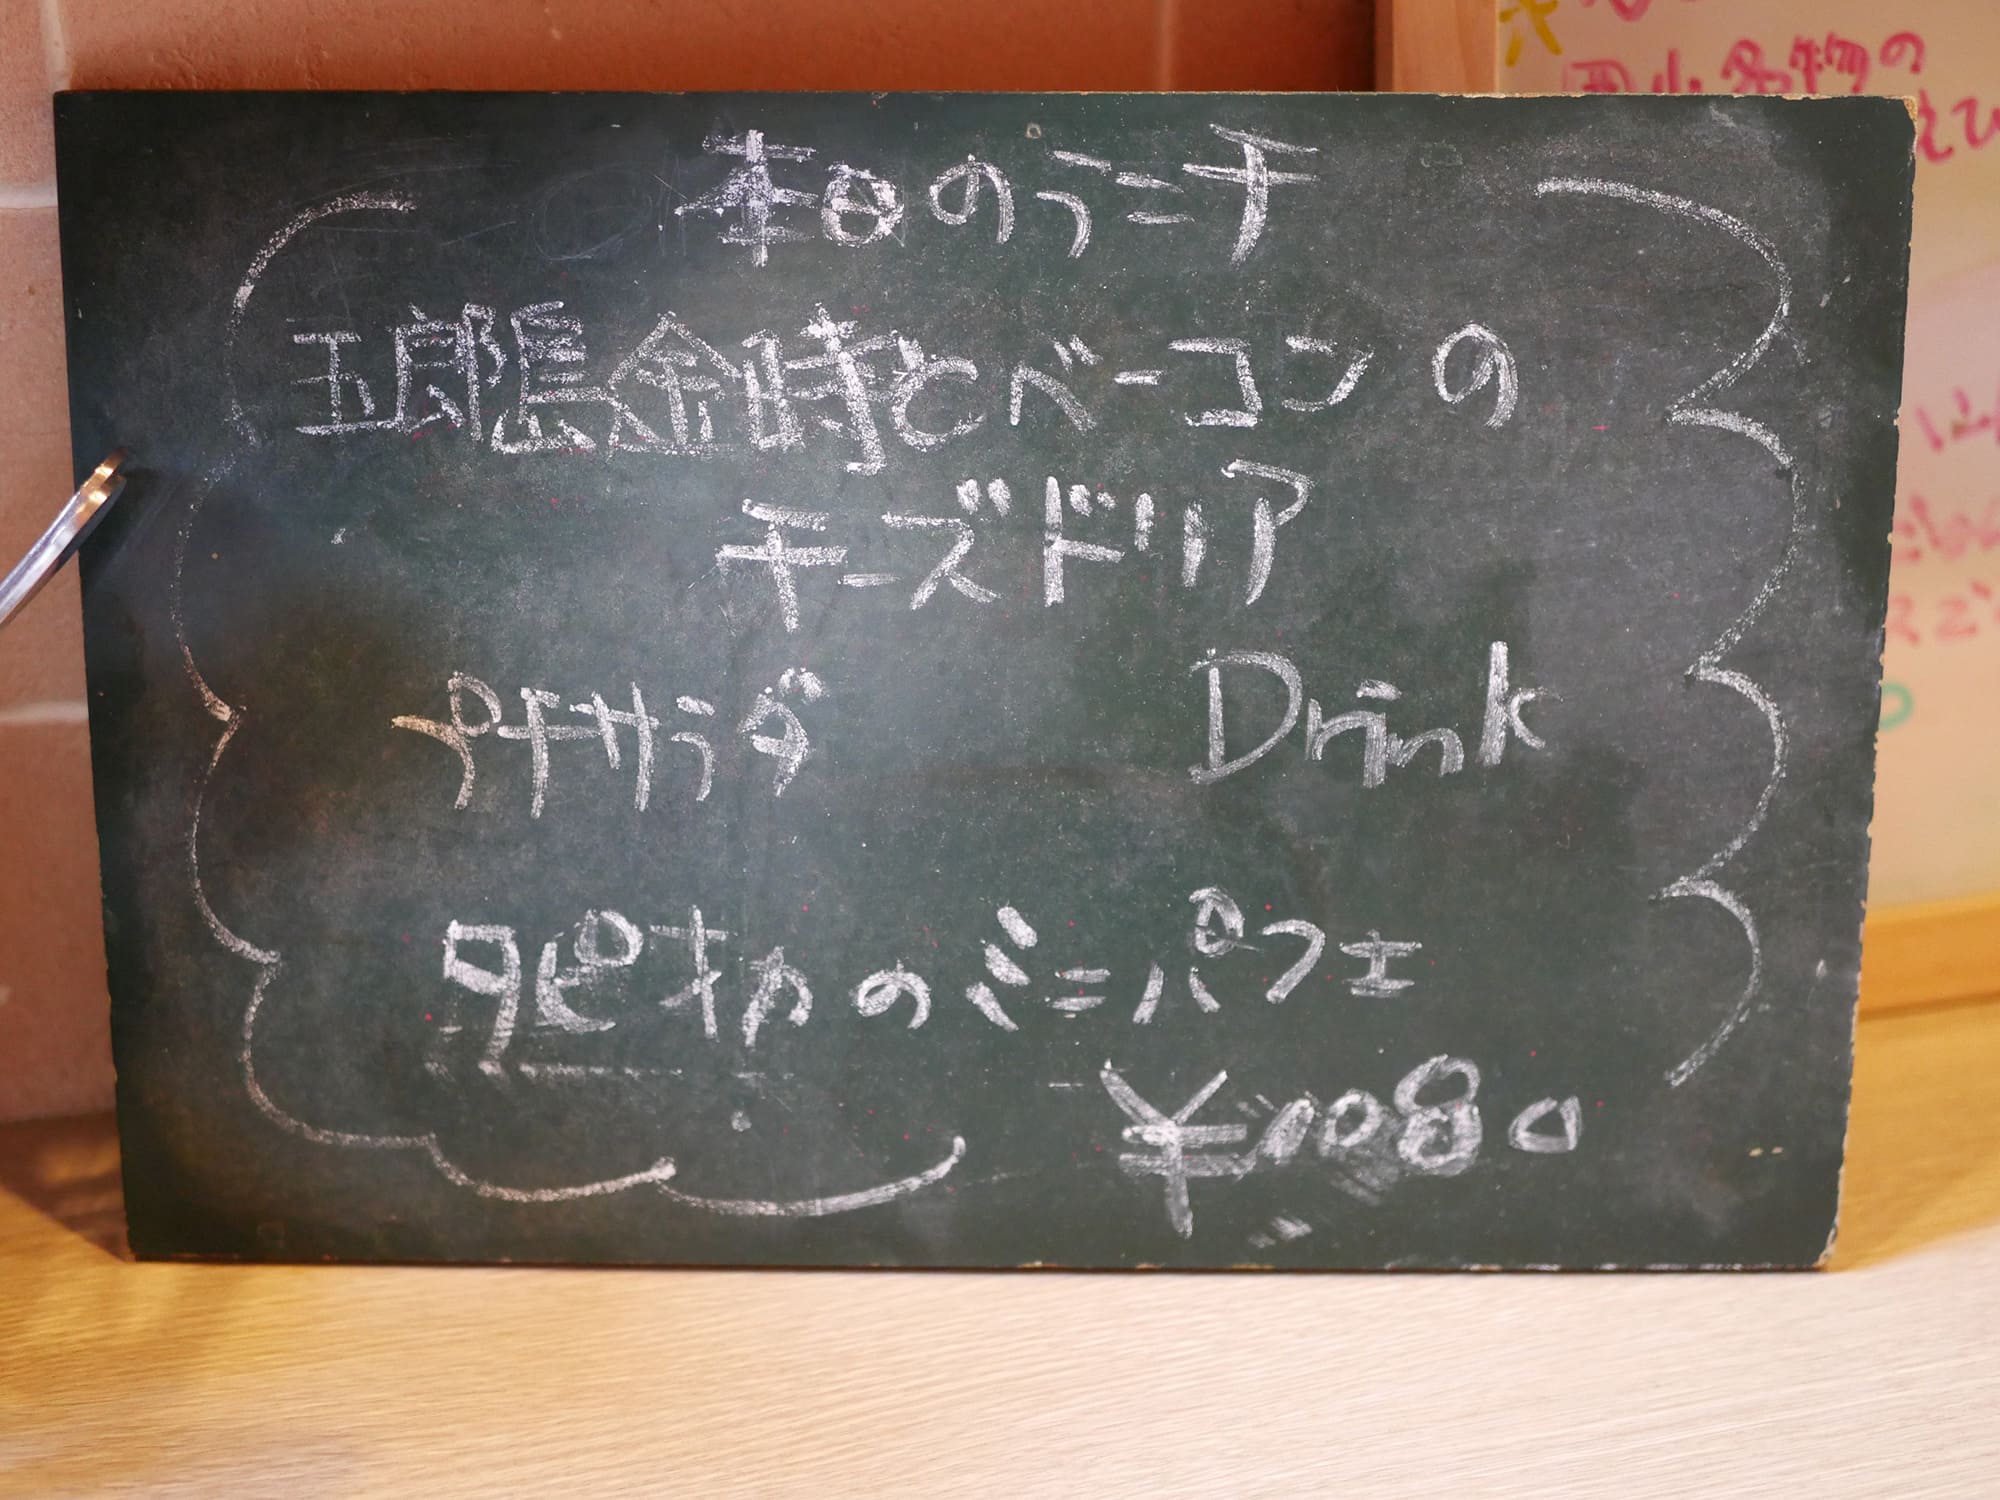 本日のランチ
五郎島金時とベーコンの
チーズドリア
プチサラダ
Drink
タピオカのミニパフェ
¥1080
名物の